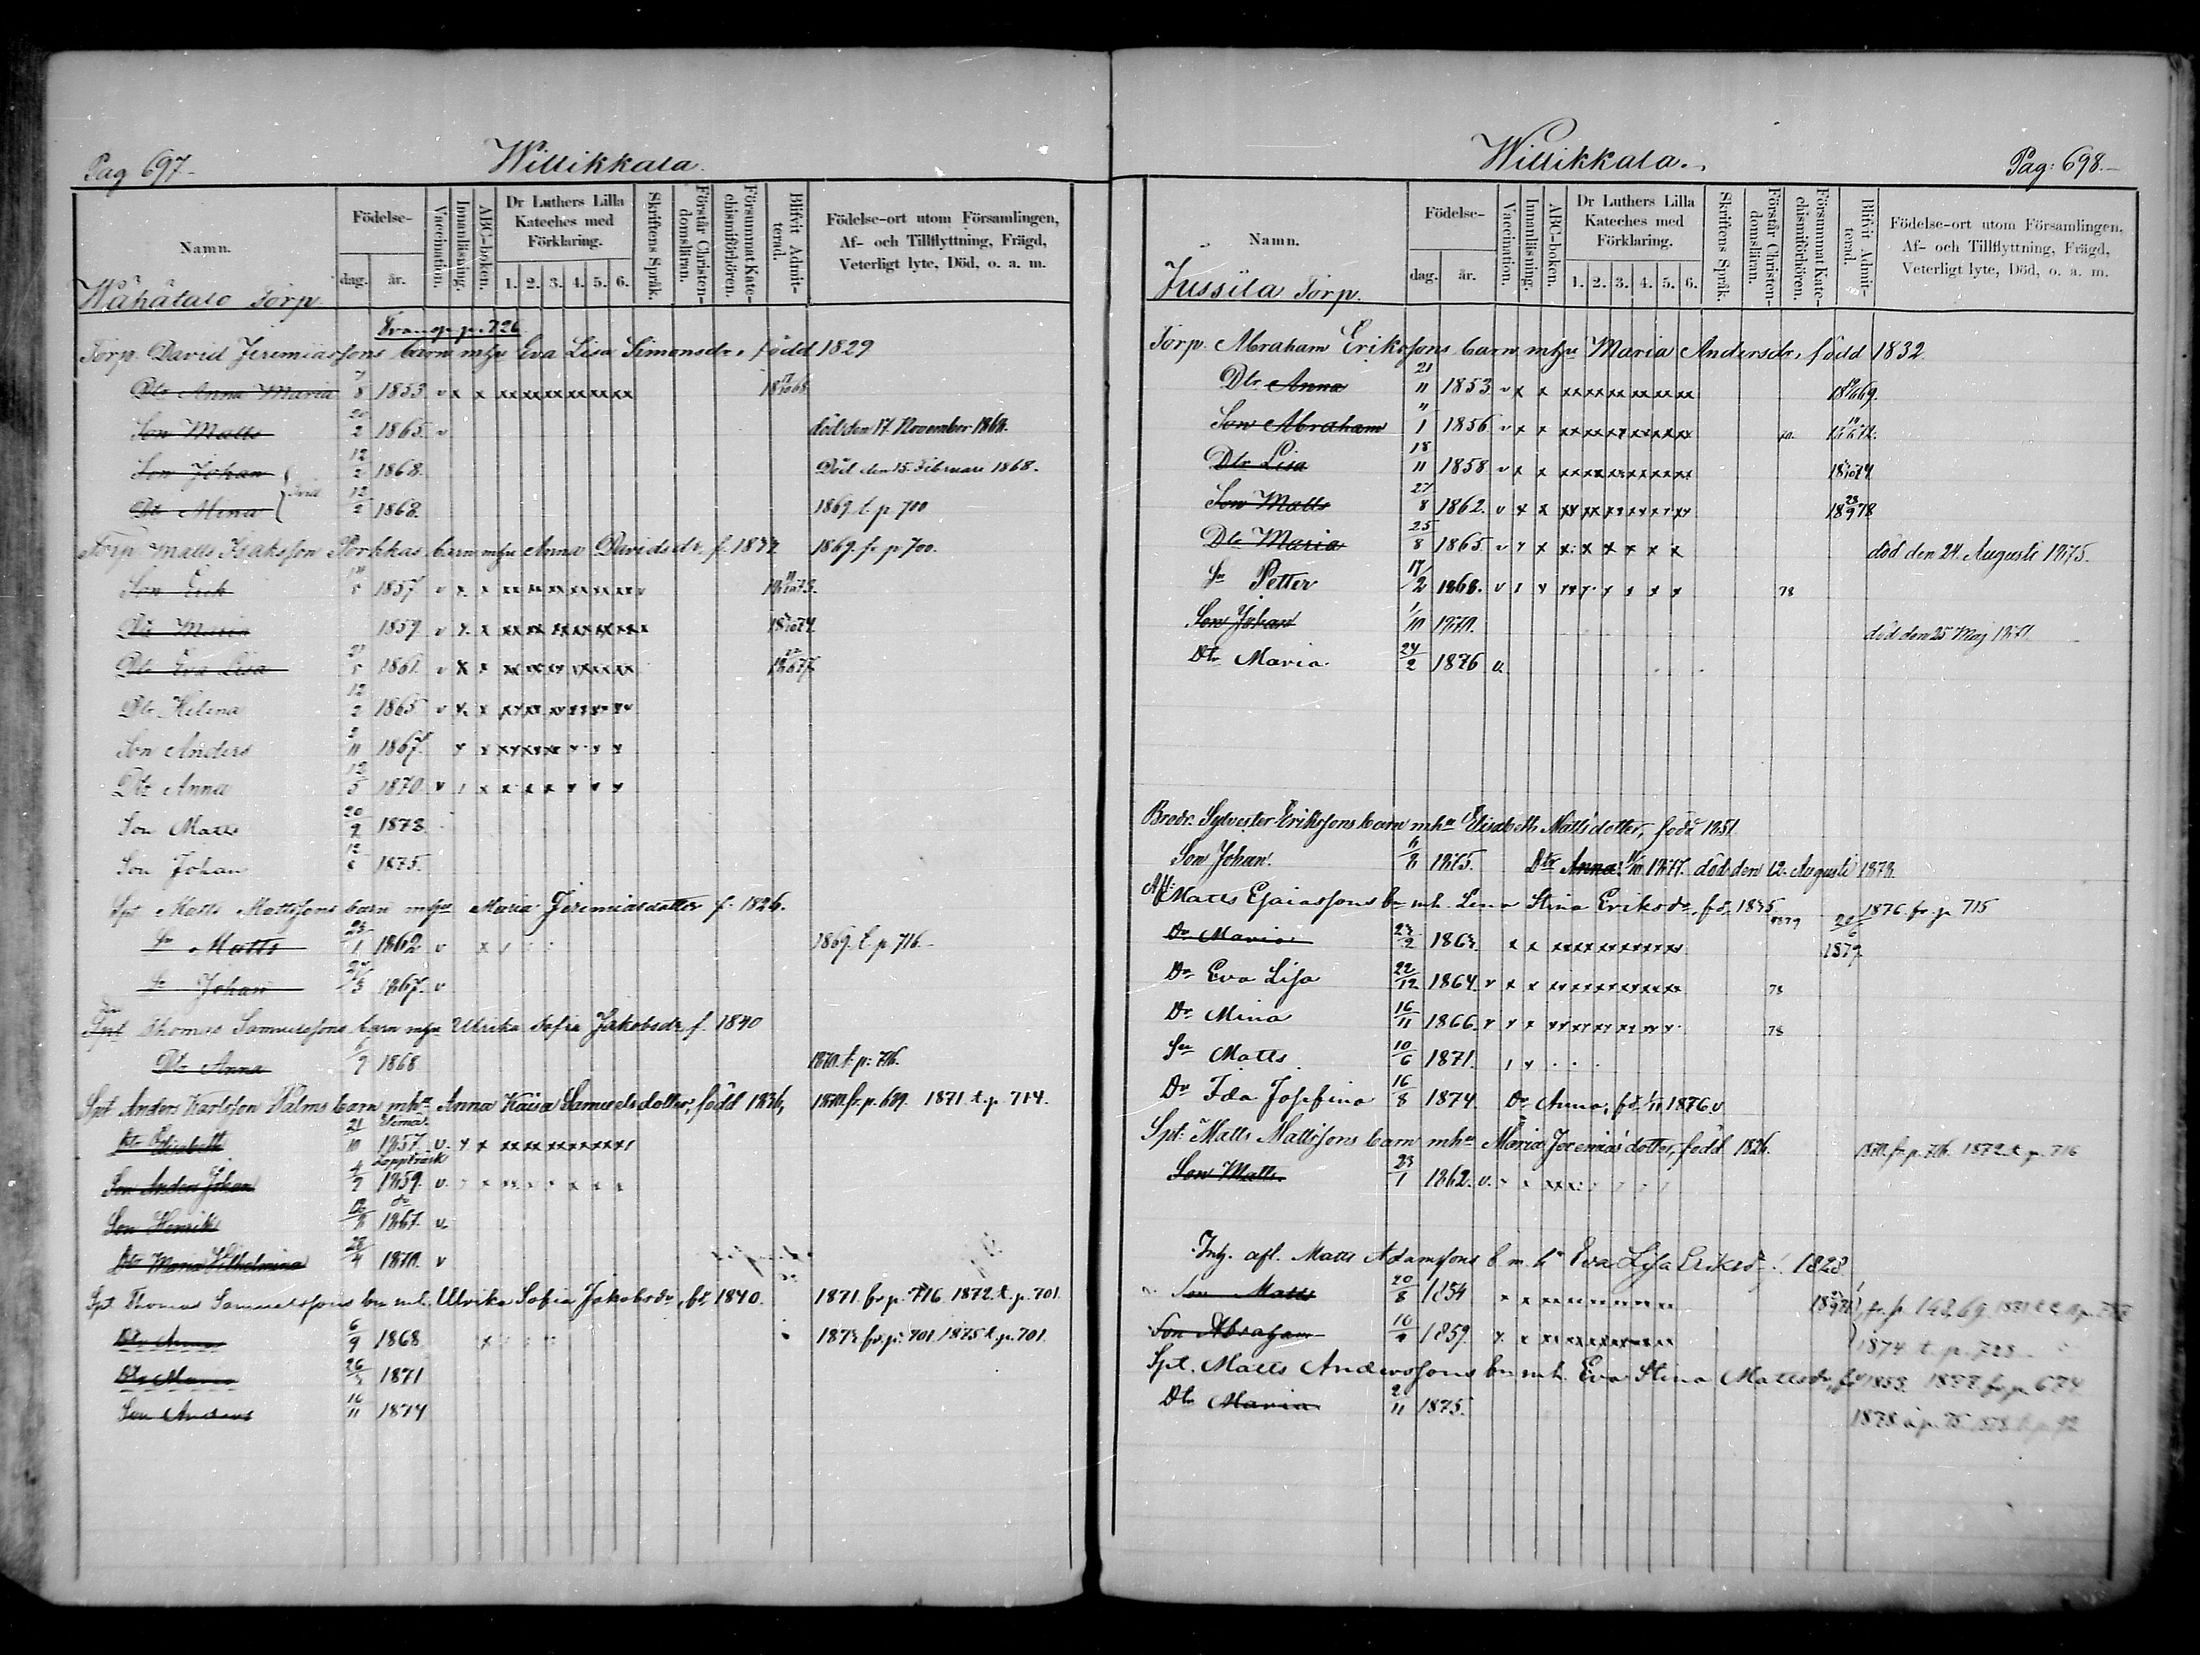 Pag 697.
Willikkala.
Namn.
Födelse-
dag.
år.
Vaccination.
Innanläsning.
ABC-boken.
Dr Luthers Lilla Kateches med Förklaring.
1. 2. 3. 4. 5. 6.
Skriftens Språk.
Förstår Christendomsläran.
Försummat Katechismiförhören.
Blifvit Admitterad.
Födelse-ort utom Församlingen,
Af- och Tillflyttning, Frägd,
Veterligt lyte, Död, o. a. m.
Wähätalo Torp
p. 726
Torp. David Jeremiassons barn mhu Eva Lisa Simonsdr. född 1829
Dtr Anna Maria 7/8 1853 v x x
Son Matts 20/2 1865 v död den 17 November 1868.
Son Johan 12/2 1868. Död den 15. Februari 1868.
Dtr Mina 12/2 1868. 1869. t. p 700
Torp Matts Isaksson Porkkas barn mhu Anna Davidsdr, f. 1834 1869. fr p 700.
Son Erik 1857 v x x
Dtr Maria 1859 v x x
Dtr Eva Lisa 1861 v x x
Dtr Helena 12/2 1865 v x x
Son Anders 2/11 1867.
Dtr Anna 12/5 1870 v
Son Matts 20/9 1873
Son Johan 12/6 1875.
Spt Matts Mattssons barn mhu Maria Jeremiasdotter f. 1826.
Sn Matts 23/1 1862 v 1869. t. p 716.
Sn Johan 1867. v
Thomas Samuelssons barn mhu Ulrika Sofia Jakobsdr, f. 1840
Dtr Anna 6/9 1868 1870. t. p. 716.
Spt Anders Karlsson Palms barn mhu Anna Kaisa Samuelsdotter, född 1836, 1870. fr. p. 699. 1871. t. p. 714.
Elimä.
Dtr Elisabeth 21/10 1857. v. x x
Lappträsk
Son Anders Johan 4/9 1859. v.
do
Son Henrik 12/8 1867. v.
Dtr Maria Wilhelmina 28/4 1870. v
Spt. Thomas Samuelssons bn mh. Ulrika Sofia Jakobsdr, fd. 1840. 1871. fr p. 716. 1872. t. p. 701.
Dtr Anna 6/9 1868 1873 fr. p. 701. 1875 t. p. 701.
Dtr Maria 1871
Son Anders 16/11 1874
Willikkala.
Pag: 698.
Namn.
Födelse-
dag.
år.
Vaccination.
Innanläsning.
ABC-boken
Dr Luthers Lilla Kateches med Förklaring.
1. 2. 3. 4. 5. 6.
Skriftens Språk.
Förstår Christendomsläran.
Försummat Katechismiförhören.
Blifvit Admitterad.
Födelse-ort utom Församlingen,
Af- och Tillflyttning, Frägd,
Veterligt lyte, Död, o. a. m.
Jussila Torp.
Torp. Abraham Erikssons barn mhu Maria Andersdr, född 1832
Dtr Anna 21/11 1853 v x x
Son Abraham 11/1 1856 v x x
Dtr Lisa 18/11 1858 v x x
Son Matts 27/8 1862. v x x
Dtr Maria 25/8 1865 v x x död den 24. Augusti 1875.
Sn Petter 17/2 1868. v 78
Son Johan 1/10 1870. död den 25 Maj 1871
Dtr Maria 24/2 1876 v.
Brodr. Sylvester Erikssons barn mhu Elisabeth Mattsdotter, född 1851
Son Johan. 6/8 1875. Dtr Anna. 1877. död den 12. Augusti 1878.
Aft. Matts Esaiassons bn mh. Lena Stina Eriksdr, fd. 1835 1876. fr. p 715
Dr Maria 23/2 1863. x x 1879
Dr Eva Lisa 22/12 1864. v x x 78
Dr Mina 16/11 1866. 78
Sn Matts 10/6 1871.
Dr Ida Josefina 16/8 1874. Dr Anna, fd. 1876. v
Spt: Matts Mattssons barn mhu Maria Jeremiasdotter, född 1826. 1870. fr. p. 716. 1872 t. p. 716
Son Matts. 23/1 1862. v.
Inh. afl. Matts Adamssons b. m. hu Eva Lisa Eriksdr 1828
Son Matts 20/8 1854
Son Abraham 1859. 1874 t. p. 728
Spt. Matts Anderssons bn mh. Eva Stina Mattsdr, fd 1853. 1877. fr p 674
Dtr Maria 2/11 1875.